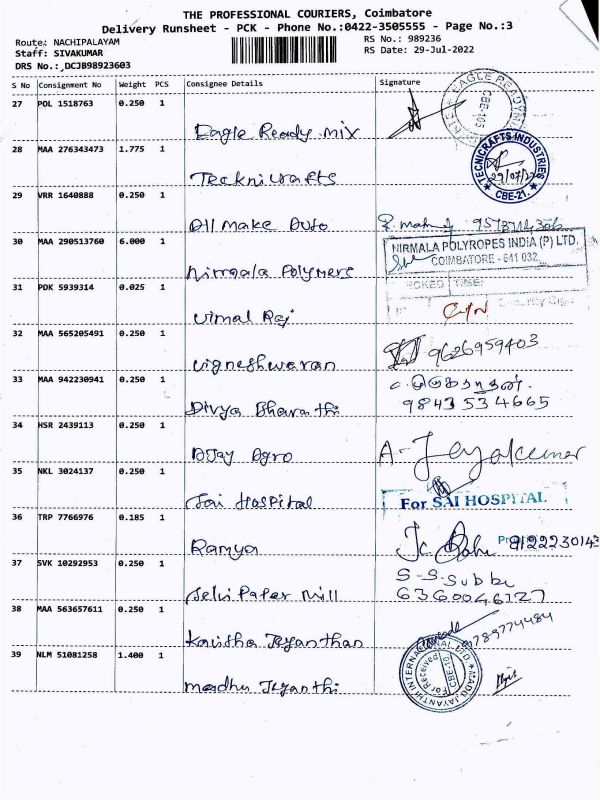 THE PROFESSIONAL COURIERS, Coimbatore
Delivery Runsheet - PCK - Phone No.:0422-3505555 - Page No.:3
Route: NACHIPALAYAM RS No.: 989236
Staff: SIVAKUMAR RS Date: 29-Jul-2022
DRS No.: DCJB98923603
S No Consignment No Weight PCS Consignee Details Signature
27 POL 1518763 0.250 1
Eagle Ready mix
EAGLE READY
CBE-105
28 MAA 276343473 1.775 1
Tecknicrafts
TECNICRAFTS INDUSTRIES
29/07/22
CBE-21.
29 VRR 1640888 0.250 1
All make Auto
30 MAA 290513760 6.000 1
Nirmala Polymers
NIRMALA POLYROPES INDIA (P) LTD.
COIMBATORE - 641 032
TIME:
31 PDK 5939314 0.025 1
Vimal Raj
Security Sign
32 MAA 565205491 0.250 1
Vigneshwaran
9626959403
33 MAA 942230941 0.250 1
Divya Bharathi
9843534665
34 HSR 2439113 0.250 1
Ajay Agro
A-Jeyakumar
35 NKL 3024137 0.250 1
Sai Hospital
For SAI HOSPITAL
36 TRP 7766976 0.185 1
Ramya
9122230143
37 SVK 10292953 0.250 1
Selvi Paper Mill
S-S-Subbu
6360046127
38 MAA 563657611 0.250 1
Kavitha Jeyanthan
9789774484
39 NLM 51081258 1.400 1
Madhu Jeyanthi
MADHU JAYANTHI INTERNATIONAL LTD.
For Received